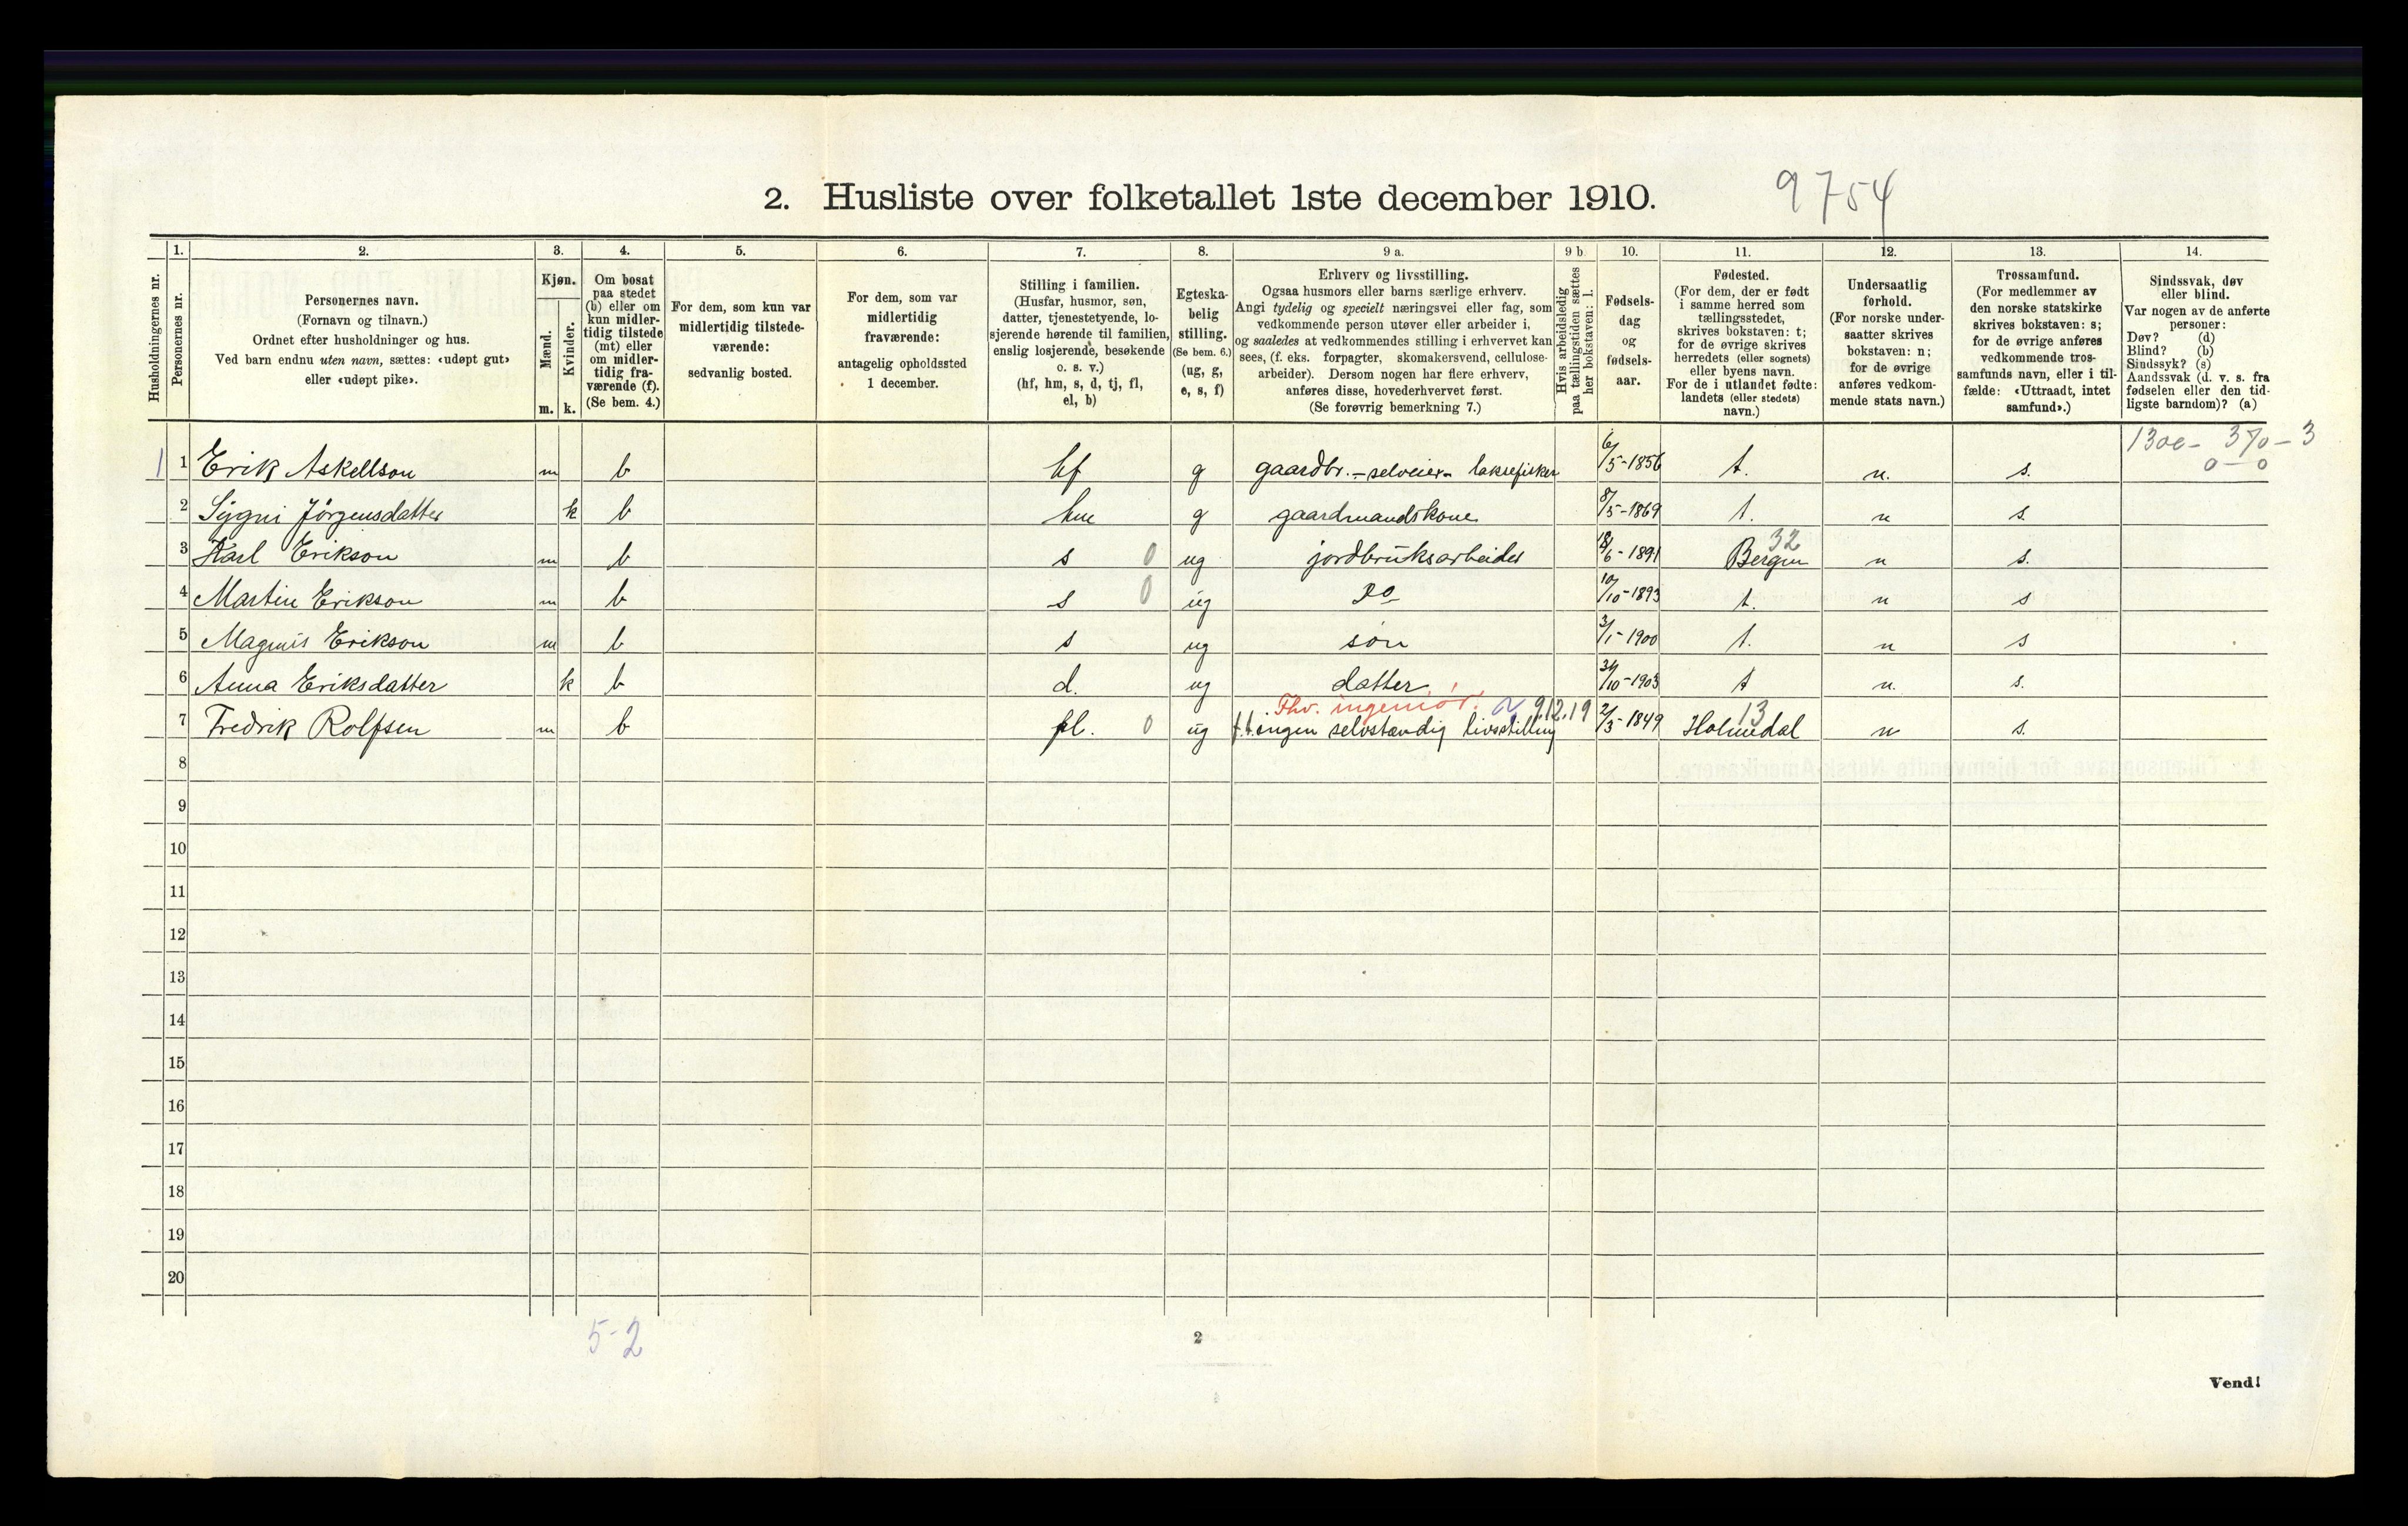 2. Husliste over folketallet 1ste december 1910.
9754
1. 2. 3. 4. 5. 6. 7. 8. 9 a. 9 b. 10. 11. 12. 13. 14.
Husholdningernes nr.
Personernes nr.
Personernes navn.
(Fornavn og tilnavn.)
Ordnet efter husholdninger og hus.
Ved barn endnu uten navn, sættes: «udøpt gut»
eller «udøpt pike».
Kjøn.
Mænd.
Kvinder.
m. k.
Om bosat
paa stedet
(b) eller om
kun midler-
tidig tilstede
(mt) eller
om midler-
tidig fra-
værende (f).
(Se bem. 4.)
For dem, som kun var
midlertidig tilstede-
værende:
sedvanlig bosted.
For dem, som var
midlertidig
fraværende:
antagelig opholdssted
1 december.
Stilling i familien.
(Husfar, husmor, søn,
datter, tjenestetyende, lo-
sjerende hørende til familien,
enslig losjerende, besøkende
o. s. v.)
(hf, hm, s, d, tj, fl,
el, b)
Egteska-
belig
stilling.
(Se bem. 6.)
(ug, g,
e, s, f)
Erhverv og livsstilling.
Ogsaa husmors eller barns særlige erhverv.
Angi tydelig og specielt næringsvei eller fag, som
vedkommende person utøver eller arbeider i,
og saaledes at vedkommendes stilling i erhvervet kan
sees, (f. eks. forpagter, skomakersvend, cellulose-
arbeider). Dersom nogen har flere erhverv,
anføres disse, hovederhvervet først.
(Se forøvrig bemerkning 7.)
Hvis arbeidsledig
paa tællingstiden sættes
her bokstaven: l.
Fødsels-
dag
og
fødsels-
aar.
Fødested.
(For dem, der er født
i samme herred som
tællingsstedet,
skrives bokstaven: t;
for de øvrige skrives
herredets (eller sognets)
eller byens navn.
For de i utlandet fødte:
landets (eller stedets)
navn.)
Undersaatlig
forhold.
(For norske under-
saatter skrives
bokstaven: n;
for de øvrige
anføres vedkom-
mende stats navn.)
Trossamfund.
(For medlemmer av
den norske statskirke
skrives bokstaven: s;
for de øvrige anføres
vedkommende tros-
samfunds navn, eller i til-
fælde: «Uttraadt, intet
samfund».)
Sindssvak, døv
eller blind.
Var nogen av de anførte
personer:
Døv? (d)
Blind? (b)
Sindssyk? (s)
Aandssvak (d. v. s. fra
fødselen eller den tid-
ligste barndom)? (a)
370 - 3
0 - 0
1 1 Erik Askellson m b hf g gaardbr. - selveier - laksefisker 6/5-1856 t. n. s.
2 Sygni Jörgensdatter k b hm g gaardmandskone 8/5-1869 t. n s.
32
3 Karl Erikson m b s 0 ug jordbruksarbeider 18/6-1891 Bergen n s.
4 Martin Erikson m b s 0 ug do 10/10-1893 t. n s
5 Magnus Erikson m b s ug søn 3/1-1900 t. n s
6 Anna Eriksdatter k b d. ug datter 31/10-1903 t n. s.
Fhv. ingeniör. 9.12.19 13
7 Fredrik Rolfsen m b fl. 0 ug f.t. ingen selvstændig livsstilling 2/3-1849 Holmedal n s.
8
9
10
11
12
13
14
15
16
17
18
19
20
5-2
2
Vend!